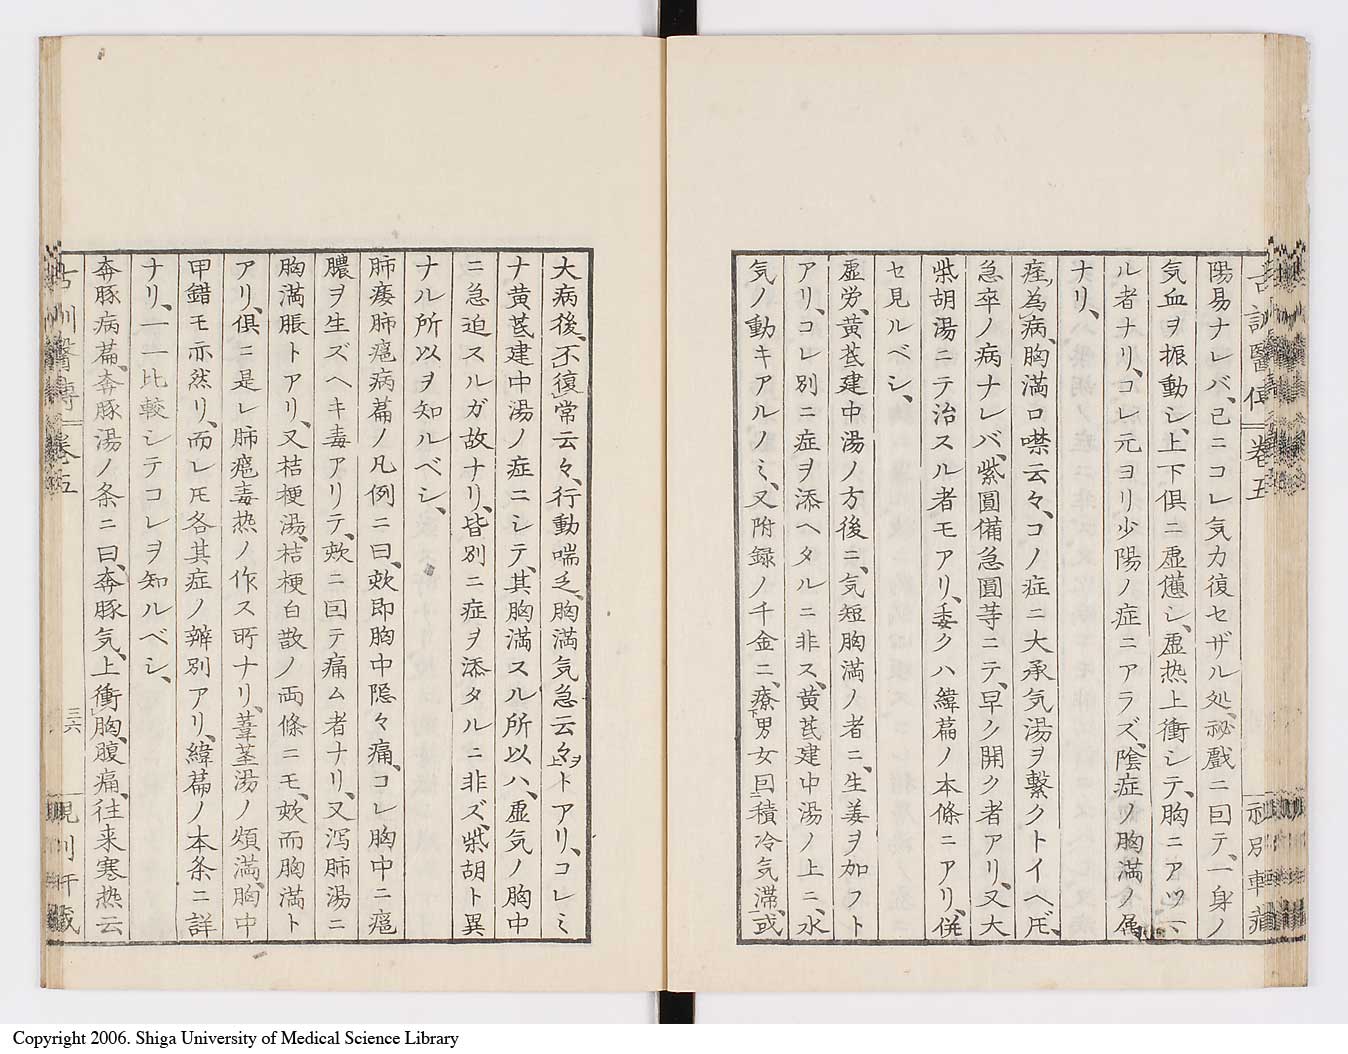 陽易ナレバ、已ニコレ気力復セザル処、祕戲ニ囙テ、一身ノ
気血ヲ振動シ、上下俱ニ虚憊シ、虚热上衝シテ、胸ニアツマ
ル者ナリ、コレ元ヨリ少陽ノ症ニアラズ、陰症ノ胸満ノ属
ナリ、
痓為病、胸満口噤云々、コノ症ニ大承気湯ヲ繫クトイヘ𪜈、
急卒ノ病ナレバ、紫圓備急圓等ニテ、早ク開ク者アリ、又大
柴胡湯ニテ治スル者モアリ、委クハ緯萹ノ本條ニアリ、併
セ見ルベシ、
虚労、黄芪建中湯ノ方後ニ、気短胸満ノ者ニ、生姜ヲ加フト
アリ、コレ別ニ症ヲ添ヘタルニ非ス、黄芪建中湯ノ上ニ、水
気ノ動キアルノミ、又附録ノ千金ニ、療男女囙積冷気滞、或
大病後、不復常云々、行動喘乏、胸満気急云々上ヲトアリ、コレミ
ナ黄芪建中湯ノ症ニシテ、其胸満スル所以ハ、虚気ノ胸中
ニ急迫スルガ故ナリ、皆別ニ症ヲ添タルニ非ズ、柴胡ト異
ナル所以ヲ知ルベシ、
肺痿肺癰病萹ノ凡例ニ曰、欬即胸中隠々痛、コレ胸中ニ癰
膿ヲ生ズヘキ毒アリテ、欬ニ囙テ痛ム者ナリ、又泻肺湯ニ
胸満脹トアリ、又桔梗湯、桔梗白散ノ両條ニモ、欬而胸満ト
アリ、俱ニ是レ肺癰毒热ノ作ス所ナリ、葦茎湯ノ煩満、胸中
甲錯モ亦然リ、而レ𪜈各其症ノ辨別アリ、緯萹ノ本条ニ詳
ナリ、一一比較シテコレヲ知ルベシ、
奔豚病萹、奔豚湯ノ条ニ曰、奔豚気、上衝胸、腹痛、往来寒热云
三六
Copyright 2006. Shiga University of Medical Science Library